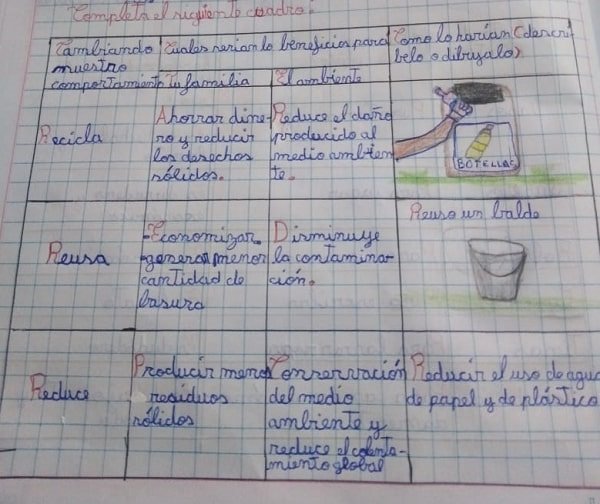 Completa el siguiente cuadro.
Cambiando
muestro
comportamiento
Cuales serian lo beneficios para
Tu familia
El ambiente
Como lo harían (descri
belo o dibujalo)
Recicla
Ahorrar dine-
ro y reducir
los desechos
sólidos.
Reduce el daño
producido al
medio ambien
te.
BOTELLAS
Reusa
-Economizar
-generar menor
cantidad de
basura
Disminuye
la contamina-
ción.
Reuso un balde
Reduce
Producir menos
residuos
sólidos
Conservación
del medio
ambiente y
reduce el calenta-
miento global
Reducir el uso de agua
de papel y de plástico